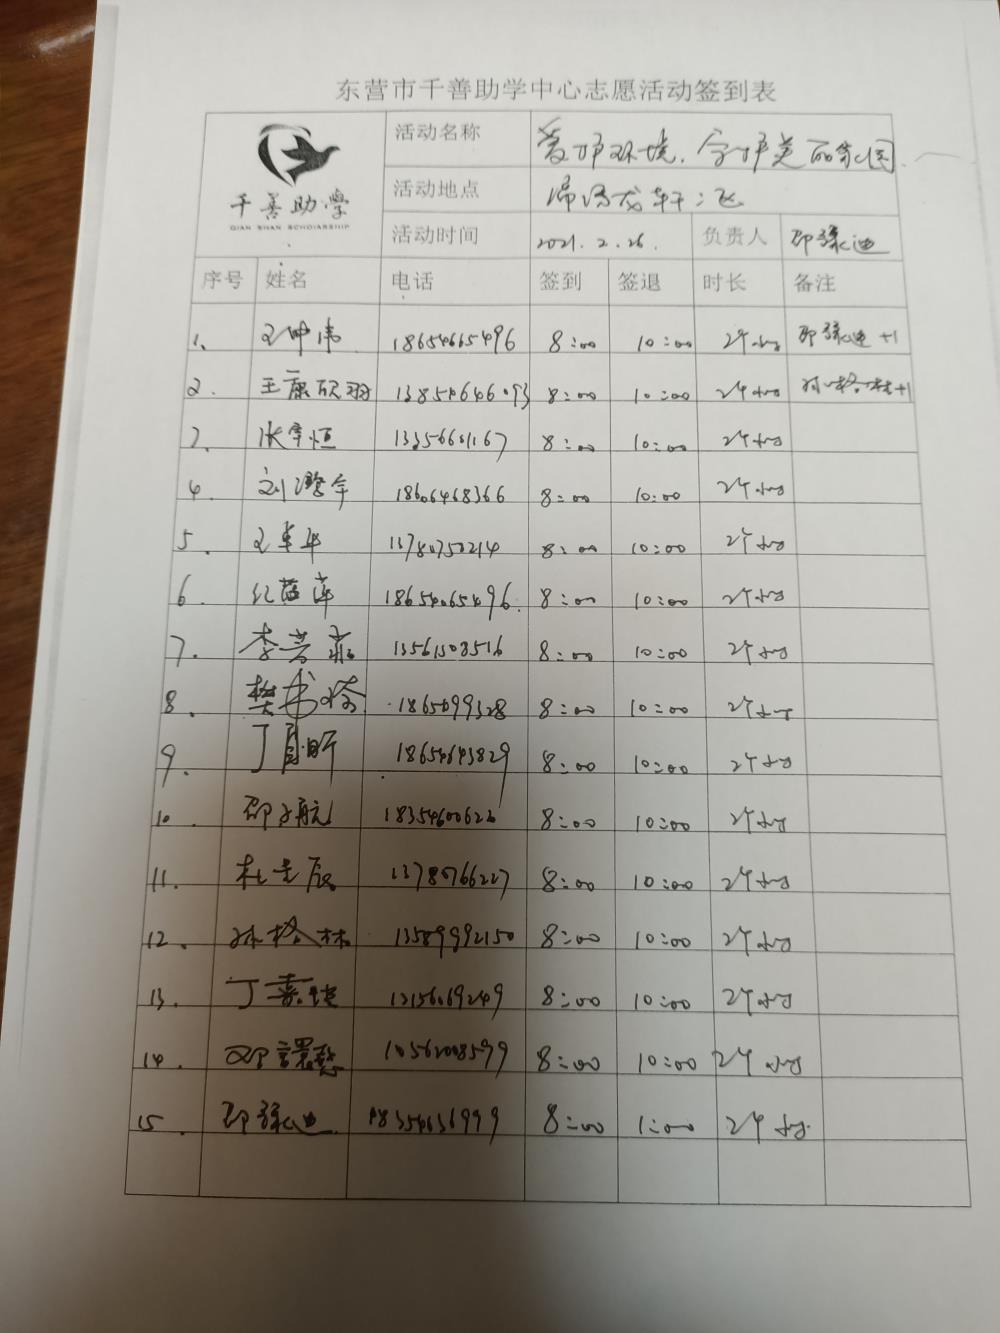 东营市千善助学中心志愿活动签到表
千善助学
QIAN SHAN SCHOLARSHIP
活动名称 爱护环境.守护美丽家园
活动地点
活动时间 2021.2.26. 负责人
序号 姓名 电话 签到 签退 时长 备注
1、 18654665496 8:00 10:00 2个小时 +1
2. 王康欣羽 13854646093 8:00 10:00 2个小时 孙格林+1
3. 张宇恒 13356601167 8:00 10:00 2个小时
4. 18606468366 8:00 10:00 2个小时
5. 13780750214 8:00 10:00 2个小时
6. 18654065496. 8:00 10:00 2个小时
7. 李芳菲 13561308516 8:00 10:00 2个小时
8. 樊书 1865099328 8:00 10:00 2个小时
9. 丁 昕 18654643829 8:00 10:00 2个小时
10 邵子航 18354600622 8:00 10:00 2个小时
11. 13780766227 8:00 10:00 2个小时
12. 孙格林 13589992150 8:00 10:00 2个小时
13. 丁 13156069249 8:00 10:00 2个小时
14. 8:00 10:00 2个小时
15. 18354636999 8:00 1:00 2个小时.